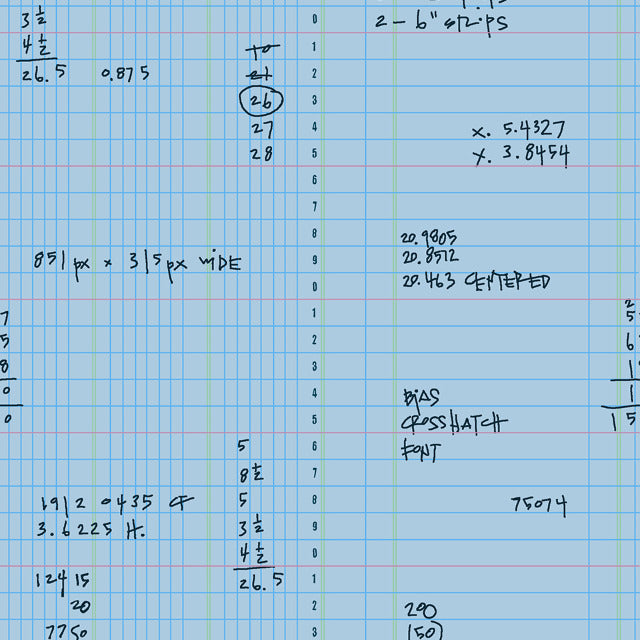 2 - 6" strips
3 1/2
4 1/2
26.5 0.875
10
21
26
27
28
x. 5.4327
Y. 3.8454
851px x 315px WIDE
20.9805
20.8512
20.463 CENTERED
BIAS
CROSSHATCH
FONT
75074
5
8 1/2
5
3 1/2
4 1/2
26.5
3.6225 H.
124 15
20
7750
290
150
0
1
2
3
4
5
6
7
8
9
0
1
2
3
4
5
6
7
8
9
0
1
2
3
7
5
8
0
0
2
5
6
1
1
15